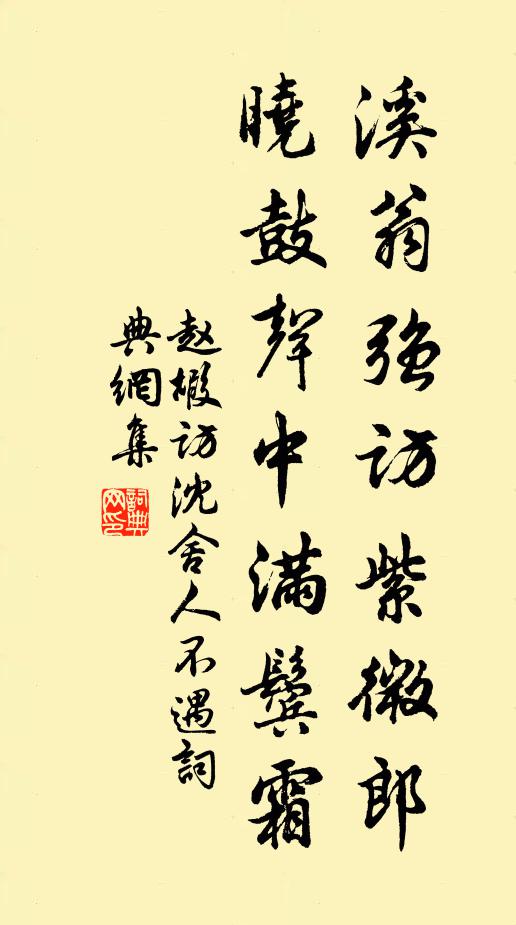 溪翁强访紫微郎
曉鼓聲中满鬓霜
赵嘏访沈舍人不遇詞
典網集
詞典网印